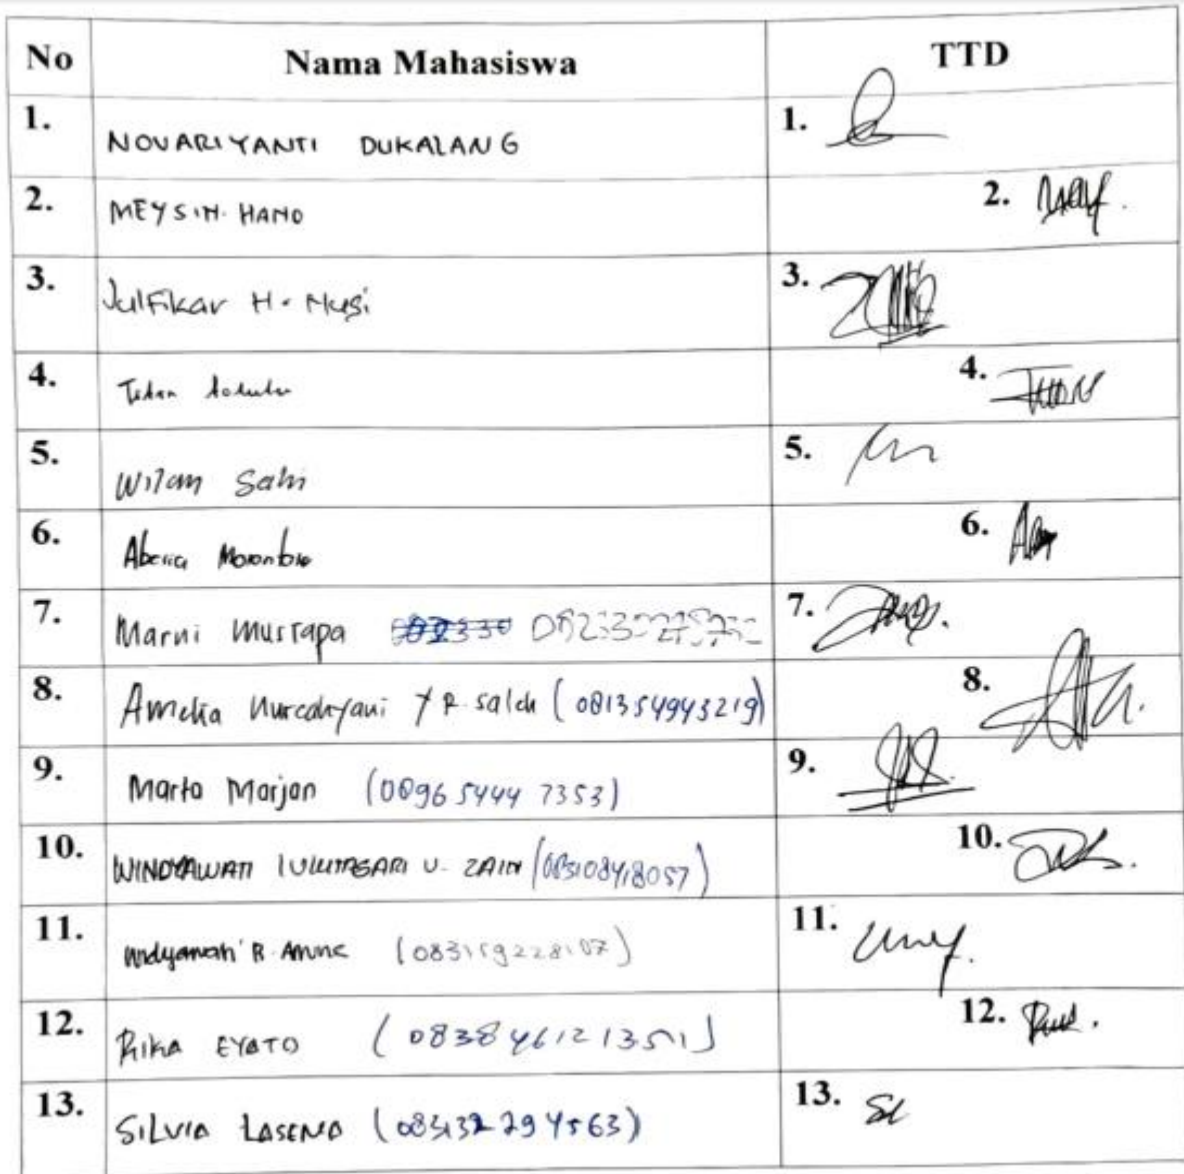 No Nama Mahasiswa TTD
1. NOVARIYANTI DUKALANG 1.
2. MEYSIN HANO 2.
3. Julfikar H. Musi 3.
4. 4.
5. Wilan Salri 5.
6. Abecia 6.
7. Marni Murtapa 7.
8. Amelia Nurcahyani Y R. Saleh (081354943219) 8.
9. Marta Marjan (0896 5444 7353) 9.
10. WINDYAWATI U. ZAIN (083108418057) 10.
11. R. Amine (083159228107) 11.
12. RIKA EYATO (083846121351) 12.
13. SILVIA LASENA 13.